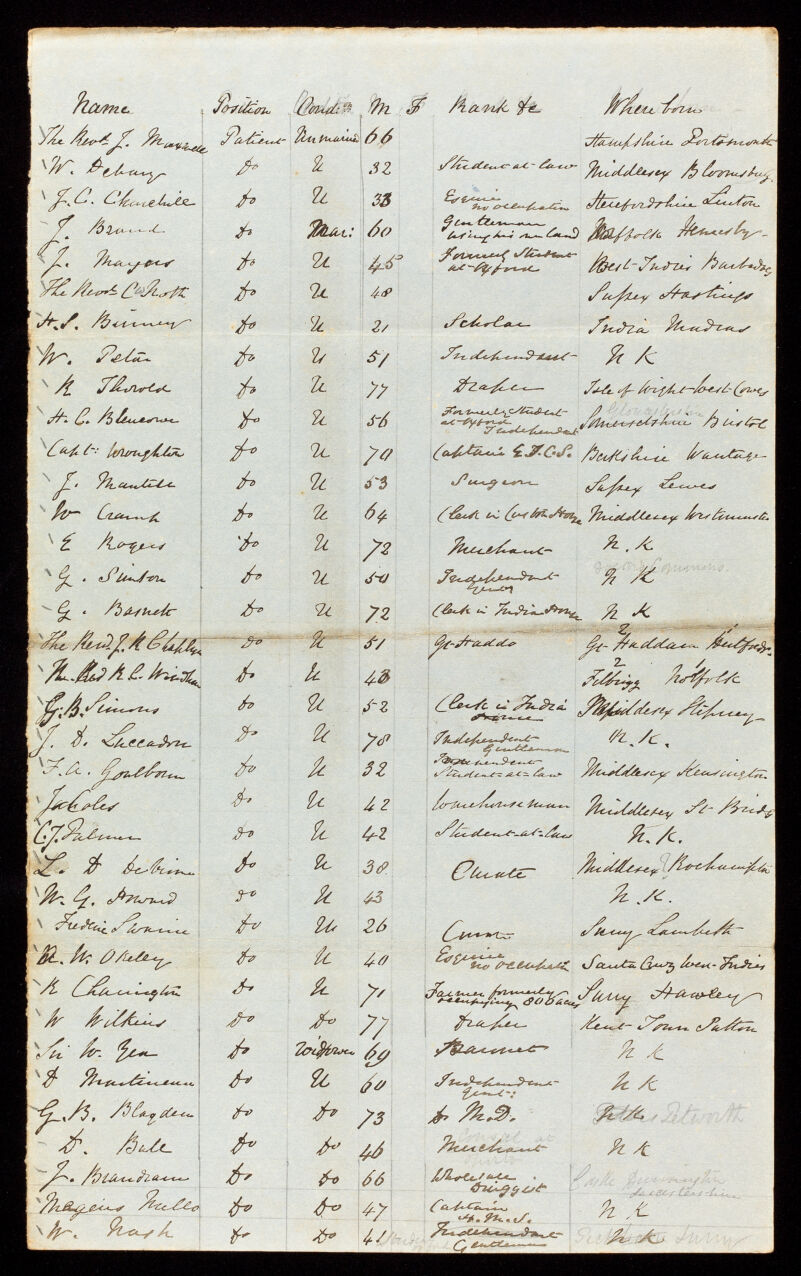 Name Position Condn M F Rank &c Where born
The Revd J. Maxwell Patient Unmarried 66 Hampshire Portsmouth
W. Debary Do U 32 Student-at-law Middlesex Bloomsbury
J. C. Churchill Do U 33 Esquire no occupation Herefordshire Linton
J. Brand Do Mar: 60 Gentleman using his own land Hemesby
J. Mayers Do U 45 Formerly Student at Oxford West Indies Barbados
The Revd C. North Do U 48 Sussex Hastings
H. S. Binney Do U 21 Scholar India Madras
W. Do U 51 Independant N K
R Thorold Do U 77 Draper Isle of Wight West Cowes
H. C. Blencowe Do U 56 Formerly Student at Oxford Independent Somersetshire Bristol
Captn: Wroughton Do U 70 Captain Berkshire Wantage
J. Mantell Do U 53 Surgeon Sussex Lewes
Wm Cramh Do U 64 Clerk in Custom House Middlesex Westminster
E Rogers Do U 72 Merchant N. K
G. Sinton Do U 50 Independent Gent N K
G. Basnett Do U 72 Clerk in India House N K
The Revd. J. R Chaplyn Do U 51 Gt Haddo Gt Haddam Hertfords.
The Revd R. C. Do U 43 Felbrigg Norfolk
G. B. Simons Do U 52 Clerk in India Middlesex Stepney
J. D. Luccadou Do U 78 Independent Gentleman N. K.
F. A. Goulbourn Do U 32 Student-at-law Middlesex Kensington
Ja Coles Do U 42 Warehouseman Middlesex St Brides
C. J. Palmer Do U 42 Student-at-law N. K.
L. D Do U 38 Curate Middlesex Roehampton
W. G. Howard Do U 43 N. K.
Do Un 26 Surry Lambeth
W. Okeley Do U 40 Esquire no occupath Santa Cruz West Indies
R Charington Do U 71 Farmer formerly occupying 800 acres Surry Hawley
W Wilkins Do Do 77 Draper Kent Town Sutton
Sir W. Yea Do Widower 69 Baronet N K
D Martineau Do U 60 Independent Gent: N K
G. B. Blagden Do Do 73 M.D. Petworth
D. Ball Do Do 46 Merchant N K
J. Brandram Do Do 66 Wholesale Druggist
Magens Mello Do Do 47 Captain N K
W. Nash Do Do 41 Independent Gentleman N K Surry